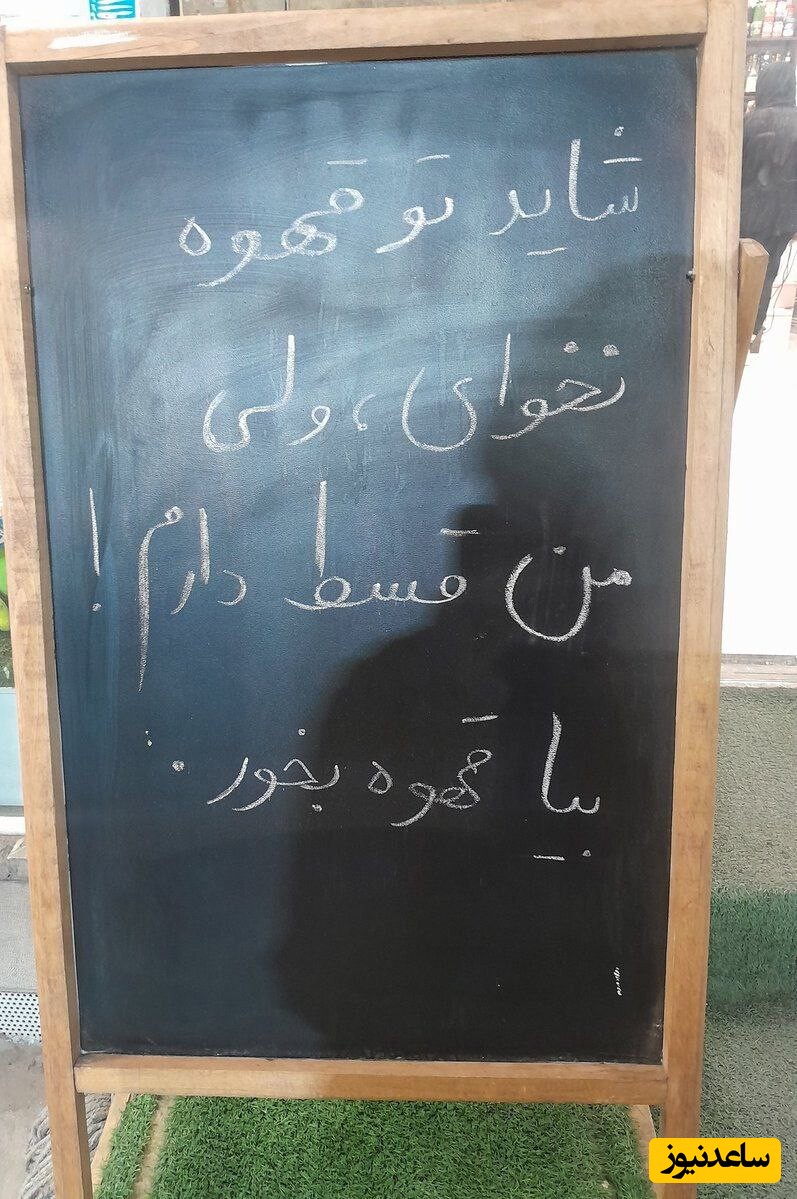 شاید تو قهوه
نخوای، ولی
من قسط دارم!
بیا قهوه بخور.
ساعدنیوز